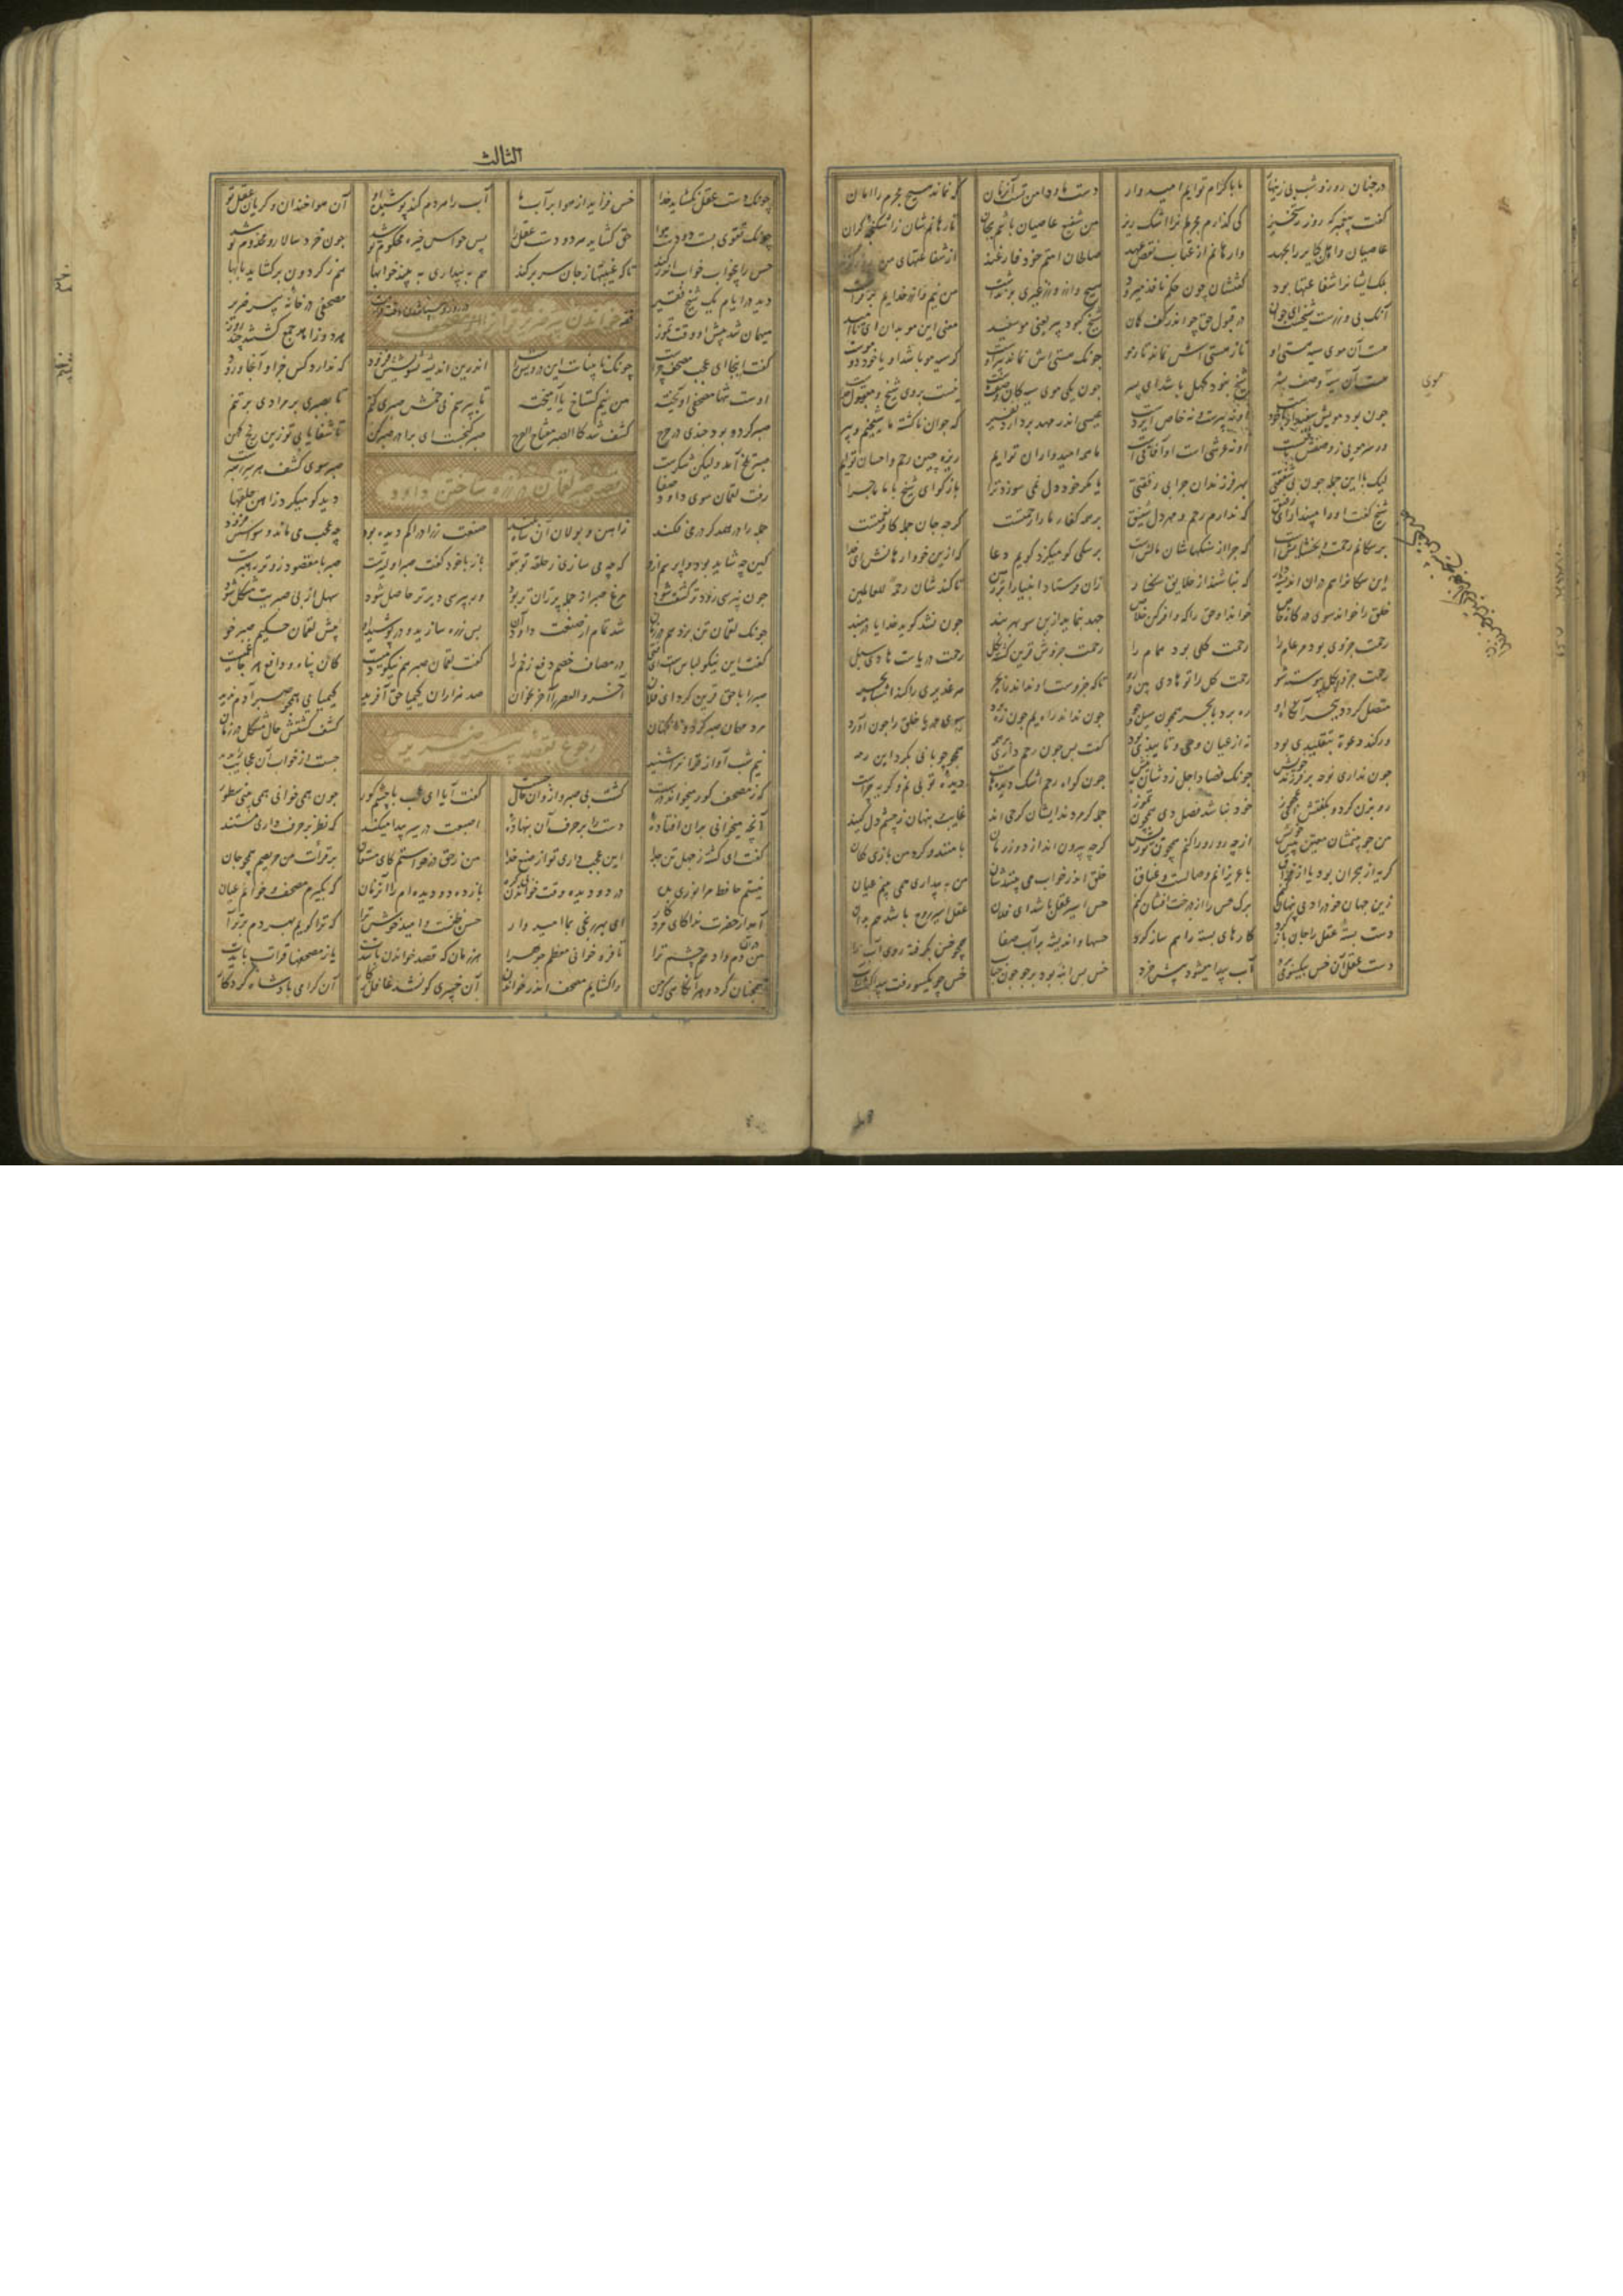 در چنان روز و شب بی زینهار ما باکرام توایم امیدوار دست ما و دامن تست آن زمان که نماند هیچ مجرم را امان
گفت پیغمبر که روز رستخیز کی گذارم مجرمانرا اشک ریز من شفیع عاصیان باشم بجان تا رهانمشان ز اشکنجه گران
عاصیان و اهل کبایر را بجهد وارهانم از عتاب نقض عهد صالحان امتم خود فارغند از شفاعتهای من روز گزند
بلک ایشانرا شفاعتها بود گفتشان چون حکم نافذ میرود هیچ وازر وزر غیری برنداشت من نیم وازر خدایم برفراشت
آنک بی وزرست شیخست ای جوان در قبول حق چو اندر کف کمان شیخ کبود پیر یعنی مو سفید معنی این مو بدان ای نا امید
هست آن موی سیه هستی او تا ز هستی اش نماند تار مو چونک هستی اش نماند پیر اوست گر سیه مو باشد او یا خود دو موست
هست آن موی سیه وصف بشر
شیخ نبود کهل باشد ای پسر چون یکی موی سیه کان وصف ماست نیست بر وی شیخ و مقبول خداست
چون بود مویش سپید ار با خودست او نه پیرست و نه خاص ایزدست عیسی اندر مهد بردارد نفیر که جوان ناگشته ما شیخیم و پیر
ور سر مویی ز وصفش باقیست او نه عرشی است او آفاقی است ما همه امیدواران توایم ریزه چین رحم و احسان توایم
لیک با این جمله چون بی شفقتی بهر فرزندان چرا بی رقتی یا مگر خود دل نمی سوزد ترا بازگو ای شیخ با ما ماجرا
شیخ گفت او را مپندار ای رفیق که ندارم رحم و مهر دل شفیق بر همه کفار ما را رحمتست گرچه جان جمله کافر نعمتست
بر سگانم رحمت و بخشایش است که چرا از سنگهاشان مالش است بر سگی کو میگزد گویم دعا که ازین خو وارهانش ای خدا
این سگان را هم در آن اندیشه دار که نباشند از خلایق سنگسار زان فرستاد انبیا را بر زمین تا کندشان رحمة للعالمین
خلق را خواند سوی درگاه خاص خواند او حق را که وافر کن خلاص جهد بنماید ازین سو بهر پند چون نشد گوید خدایا در مبند
رحمت جزوی بود مر عام را رحمت کلی بود همام را رحمت جزوش قرین گشته کل رحمت دریاست هادی سبل
رحمت جزوا بکل پیوسته شو رحمت کل را تو هادی بین و رو تا که جزوست او نداند راه بحر هر غدیری را کند اشباه بحر
متصل گردد ببحر آنگاه او ره برد تا بحر همچون سیل جو چون نداند راه یم چون ره برد سوی دریا خلق را چون آورد
ور کند دعوة بتقلیدی بود نه از عیان و وحی و تاییدی بود گفت پس چون رحم داری بر همه همچو چوپانی بگرد این رمه
چون نداری نوحه بر فرزند خویش چونک فصاد اجل زدشان بنیش چون گواه رحم اشک دیدهاست دیده تو بی نم و گریه چراست
رو بزن کرد و بگفتش ای عجوز خود نباشد فصل دی همچون تموز جمله گر مردند ایشان گر حی اند غایب و پنهان ز چشم دل کیند
من چو بینمشان معین پیش خویش از چه رو رو را کنم همچون تو ریش گرچه بیرون اند از دور زمان با منند و گرد من بازی کنان
گریه از هجران بود یا از فراق با عزیزانم وصالست و عناق خلق اندر خواب می بینندشان من به بیداری همی بینم عیان
زین جهان خود را دمی پنهان کنم برگ حس را از درخت افشان کنم حس اسیر عقل باشد ای فلان عقل اسیر روح باشد هم بدان
دست بسته عقل را جان باز کرد کارهای بسته را هم ساز کرد حسها و اندیشه بر آب صفا همچو خس بگرفته روی آب را
دست عقل آن خس بیکسو می برد آب پیدا میشود پیش خرد خس بس انبه بود بر جو چون حباب خس چو یکسو رفت پیدا گشت آب
موی
الثالث
چونک دست عقل نگشاید خدا خس فزاید از هوا بر آب ما آب را هر دم کند پوشیده او آن هوا خندان و گریان عقل تو
چونک تقوی بست دو دست هوا حق گشاید هر دو دست عقل را پس حواس خیره محکوم تو شد چون خرد سالار و مخدوم تو شد
حس را بی خواب خواب اندر کند تا که غیبیها ز جان سر بر کند هم به بیداری به بیند خوابها هم ز گردون بر گشاید بابها
قصه خواندن شیخ ضریر قرآن را از مصحف
دید در ایام یک شیخ فقیر مصحفی در خانه پیر ضریر
میهمان شد پیش او وقت تموز هر دو زاهد جمع گشته چند روز
گفت اینجا ای عجب مصحف چراست چونک نابیناست این درویش راست اندرین اندیشه تشویشش فزود که ندارد کس جز او آنجا ورود
اوست تنها مصحفی آویخته من نیم گستاخ یا آمیخته تا بپرسم نی خمش صبری کنم تا بصبری بر مرادی بر تنم
صبر کرد و بود چندی در حرج کشف شد کالصبر مفتاح الفرج صبر گنجست ای برادر صبر کن تا شفا یابی تو زین رنج کهن
قصه صبر لقمان در زره ساختن داود
صبر تلخ آمد ولیکن شکرست صبر سوی کشف هر سر رهبرست
رفت لقمان سوی داود صفا دید کو میکرد ز آهن حلقها
جمله را در همدگر در می فکند ز آهن و پولاد آن شاه بلند صنعت زراد او کم دیده بود چه عجب می ماند و سواسش فزود
کین چه شاید بود وا پرسم ازو که چه می سازی ز حلقه تو بتو باز با خود گفت صبر اولیترست صبر با مقصود زوتر رهبرست
چون نپرسی زودتر کشفت شود مرغ صبر از جمله پران تر بود ور بپرسی دیرتر حاصل شود سهل از بی صبریت مشکل شود
چونک لقمان تن بزد هم در زمان شد تمام از صنعت داود آن پس زره سازید و در پوشید او پیش لقمان حکیم صبر خو
گفت این نیکو لباس است ای فتی در مصاف خصم دفع زخم را گفت لقمان صبر هم نیکو دمیست کان پناه و دافع هر جا غمیست
صبر را با حق قرین کرد ای فلان آخر و العصر را آخر بخوان صد هزاران کیمیا حق آفرید کیمیایی همچو صبر آدم ندید
رجوع بقصه پیر ضریر
مرد مهمان صبر کرد و ناگهان کشف گشتش حال مشکل در زمان
نیم شب آواز قرآن را شنید جست از خواب آن عجایب را بدید
که ز مصحف کور میخواندی درست گشت بی صبر و ازو آن حال جست گفت آیا ای عجب با چشم کور چون همی خوانی همی بینی سطور
آنچه میخوانی بران افتاده دست را بر حرف آن بنهاده اصبعت در سیر پیدا میکند که نظر بر حرف داری مستند
گفت ای گشته ز جهل تن جدا این عجب داری تو از صنع خدا من ز حق در خواستم کای مستعان بر قرائت من حریصم همچو جان
نیستم حافظ مرا نوری بده در دو دیده وقت خواندن بی گره باز ده دو دیده ام را آن زمان که بگیرم مصحف و خوانم عیان
آمد از حضرت ندا کای مرد کار ای بهر رنجی بما امیدوار حسن ظنست و امید خوش ترا که ترا گوید بهر دم برتر آ
هر زمان که قصد خواندن باشدت یا ز مصحفها قرائت بایدت
من در آن دم وا دهم چشم ترا تا فرو خوانی معظم جوهرا
همچنان کرد و هر آنگاهی که من وا گشایم مصحف اندر خواندن آن خبیری کو نشد غافل ز کار آن گرامی پادشاه و کردگار